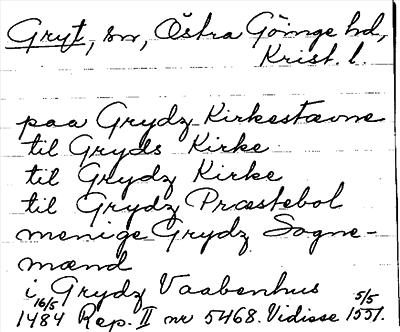 Gryt, sn, Östra Göinge hd,
Krist. l.
paa Grydz Kirkestævne
til Gryds Kirke
til Grydz Kirke
til Grydz Præstebol
menige Grydz Sogne-
mænd
i Grydz Vaabenhus
16/5 1484 Rep. II nr 5468. Vidisse 5/5 1551.